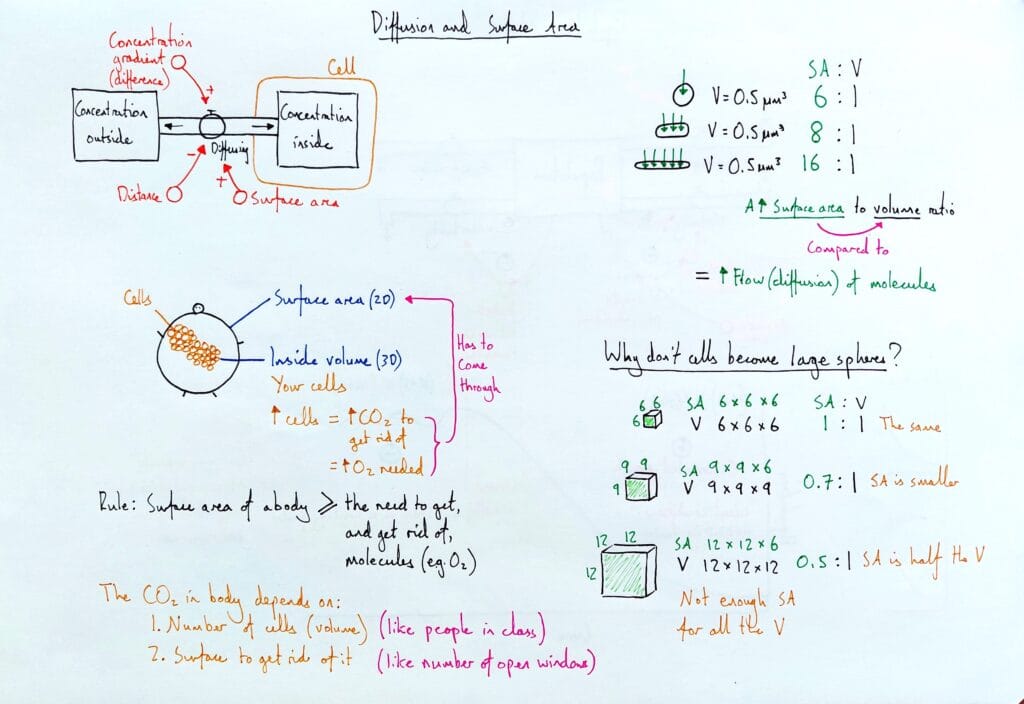 Diffusion and Surface Area
Concentration
gradient
(difference)
+
Cell
Concentration
outside
Concentration
inside
Diffusing
-
+
Distance
Surface area
SA : V
V = 0.5 µm³ 6 : 1
V = 0.5 µm³ 8 : 1
V = 0.5 µm³ 16 : 1
A ↑ Surface area to volume ratio
Compared to
= ↑ Flow (diffusion) of molecules
Cells
Surface area (2D)
Inside volume (3D)
Your cells
↑ cells = ↑ CO₂ to
get rid of
= ↑ O₂ needed
Has to
come
through
Rule: Surface area of a body ⩾ the need to get,
and get rid of,
molecules (eg. O₂)
The CO₂ in body depends on:
1. Number of cells (volume) (like people in class)
2. Surface to get rid of it (like number of open windows)
Why don't cells become large spheres?
6 6
6
SA 6 × 6 × 6
V 6 × 6 × 6
SA : V
1 : 1 The same
9 9
9
SA 9 × 9 × 6
V 9 × 9 × 9
0.7 : 1 SA is smaller
12 12
12
SA 12 × 12 × 6
V 12 × 12 × 12
0.5 : 1 SA is half the V
Not enough SA
for all the V